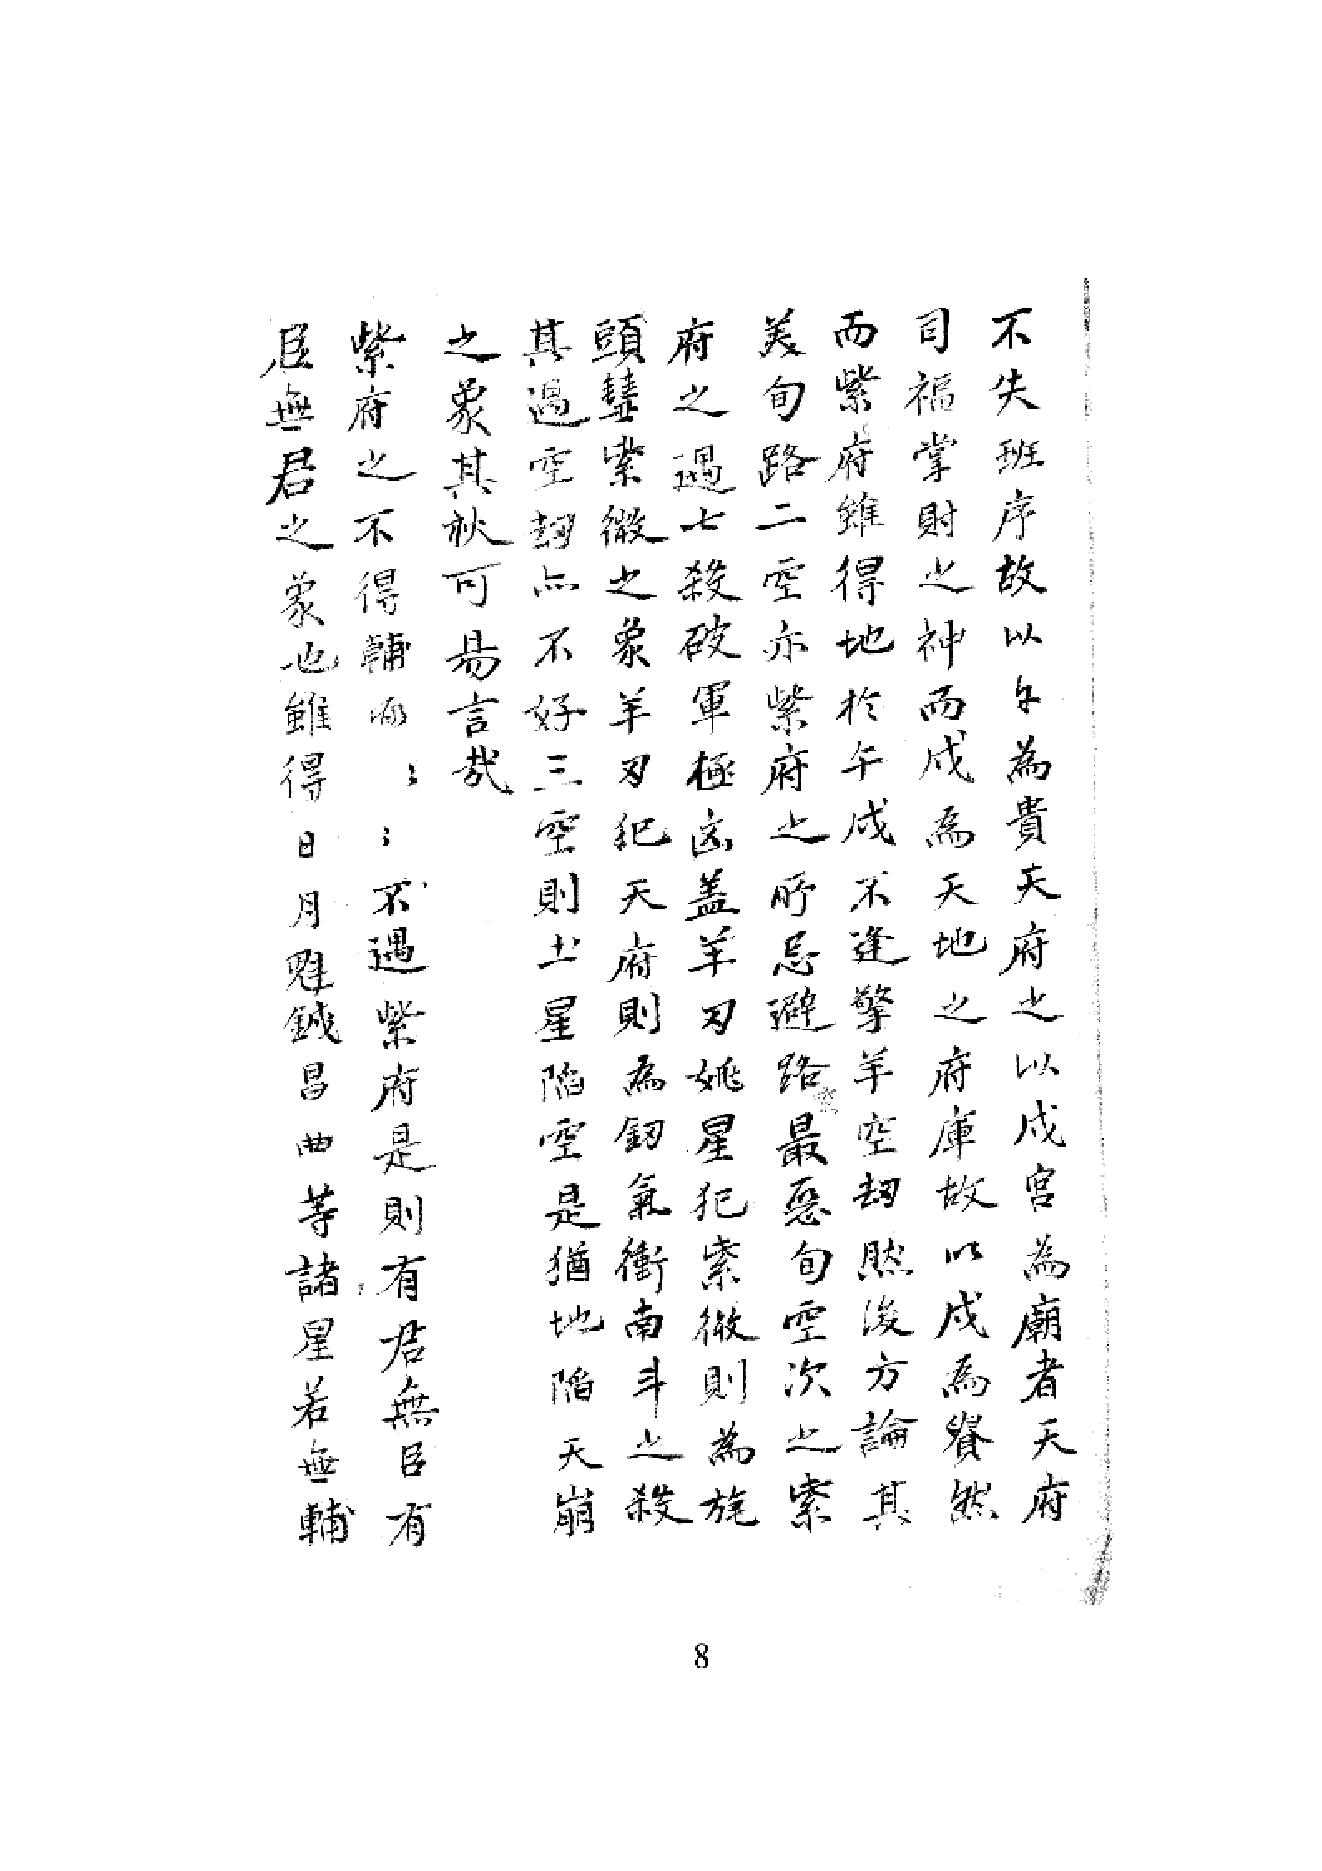 不失班序故以午為貴天府之以戍宮為廟者天府
司福掌財之神而戍為天地之府庫故以戍為貴然
而紫府雖得地於午戍不逢擎羊空刼然後方論其
美旬路二空亦紫府之所忌避路最惡旬空次之紫
府之遇七殺破軍極凶盖羊刃姚星犯紫微則為旄
頭彗紫微之象羊刃犯天府則為釼氣衝南斗之殺
其過空刼亦不好三空則土星陷空是猶地陷天崩
之象其秋可易言哉
紫府之不得輔弼〻〻不遇紫府是則有君無臣有
臣無君之象也雖得日月魁鉞昌曲等諸星若無輔
8